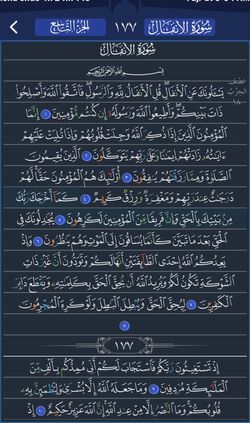 سورة الأنفال ١٧٧ الجزء التاسع
سورة الأنفال
بسم الله الرحمن الرحيم
يسألونك عن الأنفال قل الأنفال لله والرسول فاتقوا الله وأصلحوا
ذات بينكم وأطيعوا الله ورسوله إن كنتم مؤمنين ١ إنما
المؤمنون الذين إذا ذكر الله وجلت قلوبهم وإذا تليت عليهم
ءاياته زادتهم إيمانا وعلى ربهم يتوكلون ٢ الذين يقيمون
الصلوة ومما رزقناهم ينفقون ٣ أولئك هم المؤمنون حقا لهم
درجات عند ربهم ومغفرة ورزق كريم ٤ كما أخرجك ربك
من بيتك بالحق وإن فريقا من المؤمنين لكارهون ٥ يجادلونك في
الحق بعد ما تبين كأنما يساقون إلى الموت وهم ينظرون ٦ وإذ
يعدكم الله إحدى الطائفتين أنها لكم وتودون أن غير ذات
الشوكة تكون لكم ويريد الله أن يحق الحق بكلماته ويقطع دابر
الكافرين ٧ ليحق الحق ويبطل الباطل ولو كره المجرمون
٨
١٧٧
إذ تستغيثون ربكم فاستجاب لكم أني ممدكم بألف من
الملائكة مردفين ٩ وما جعله الله إلا بشرى ولتطمئن به
قلوبكم وما النصر إلا من عند الله إن الله عزيز حكيم ١٠